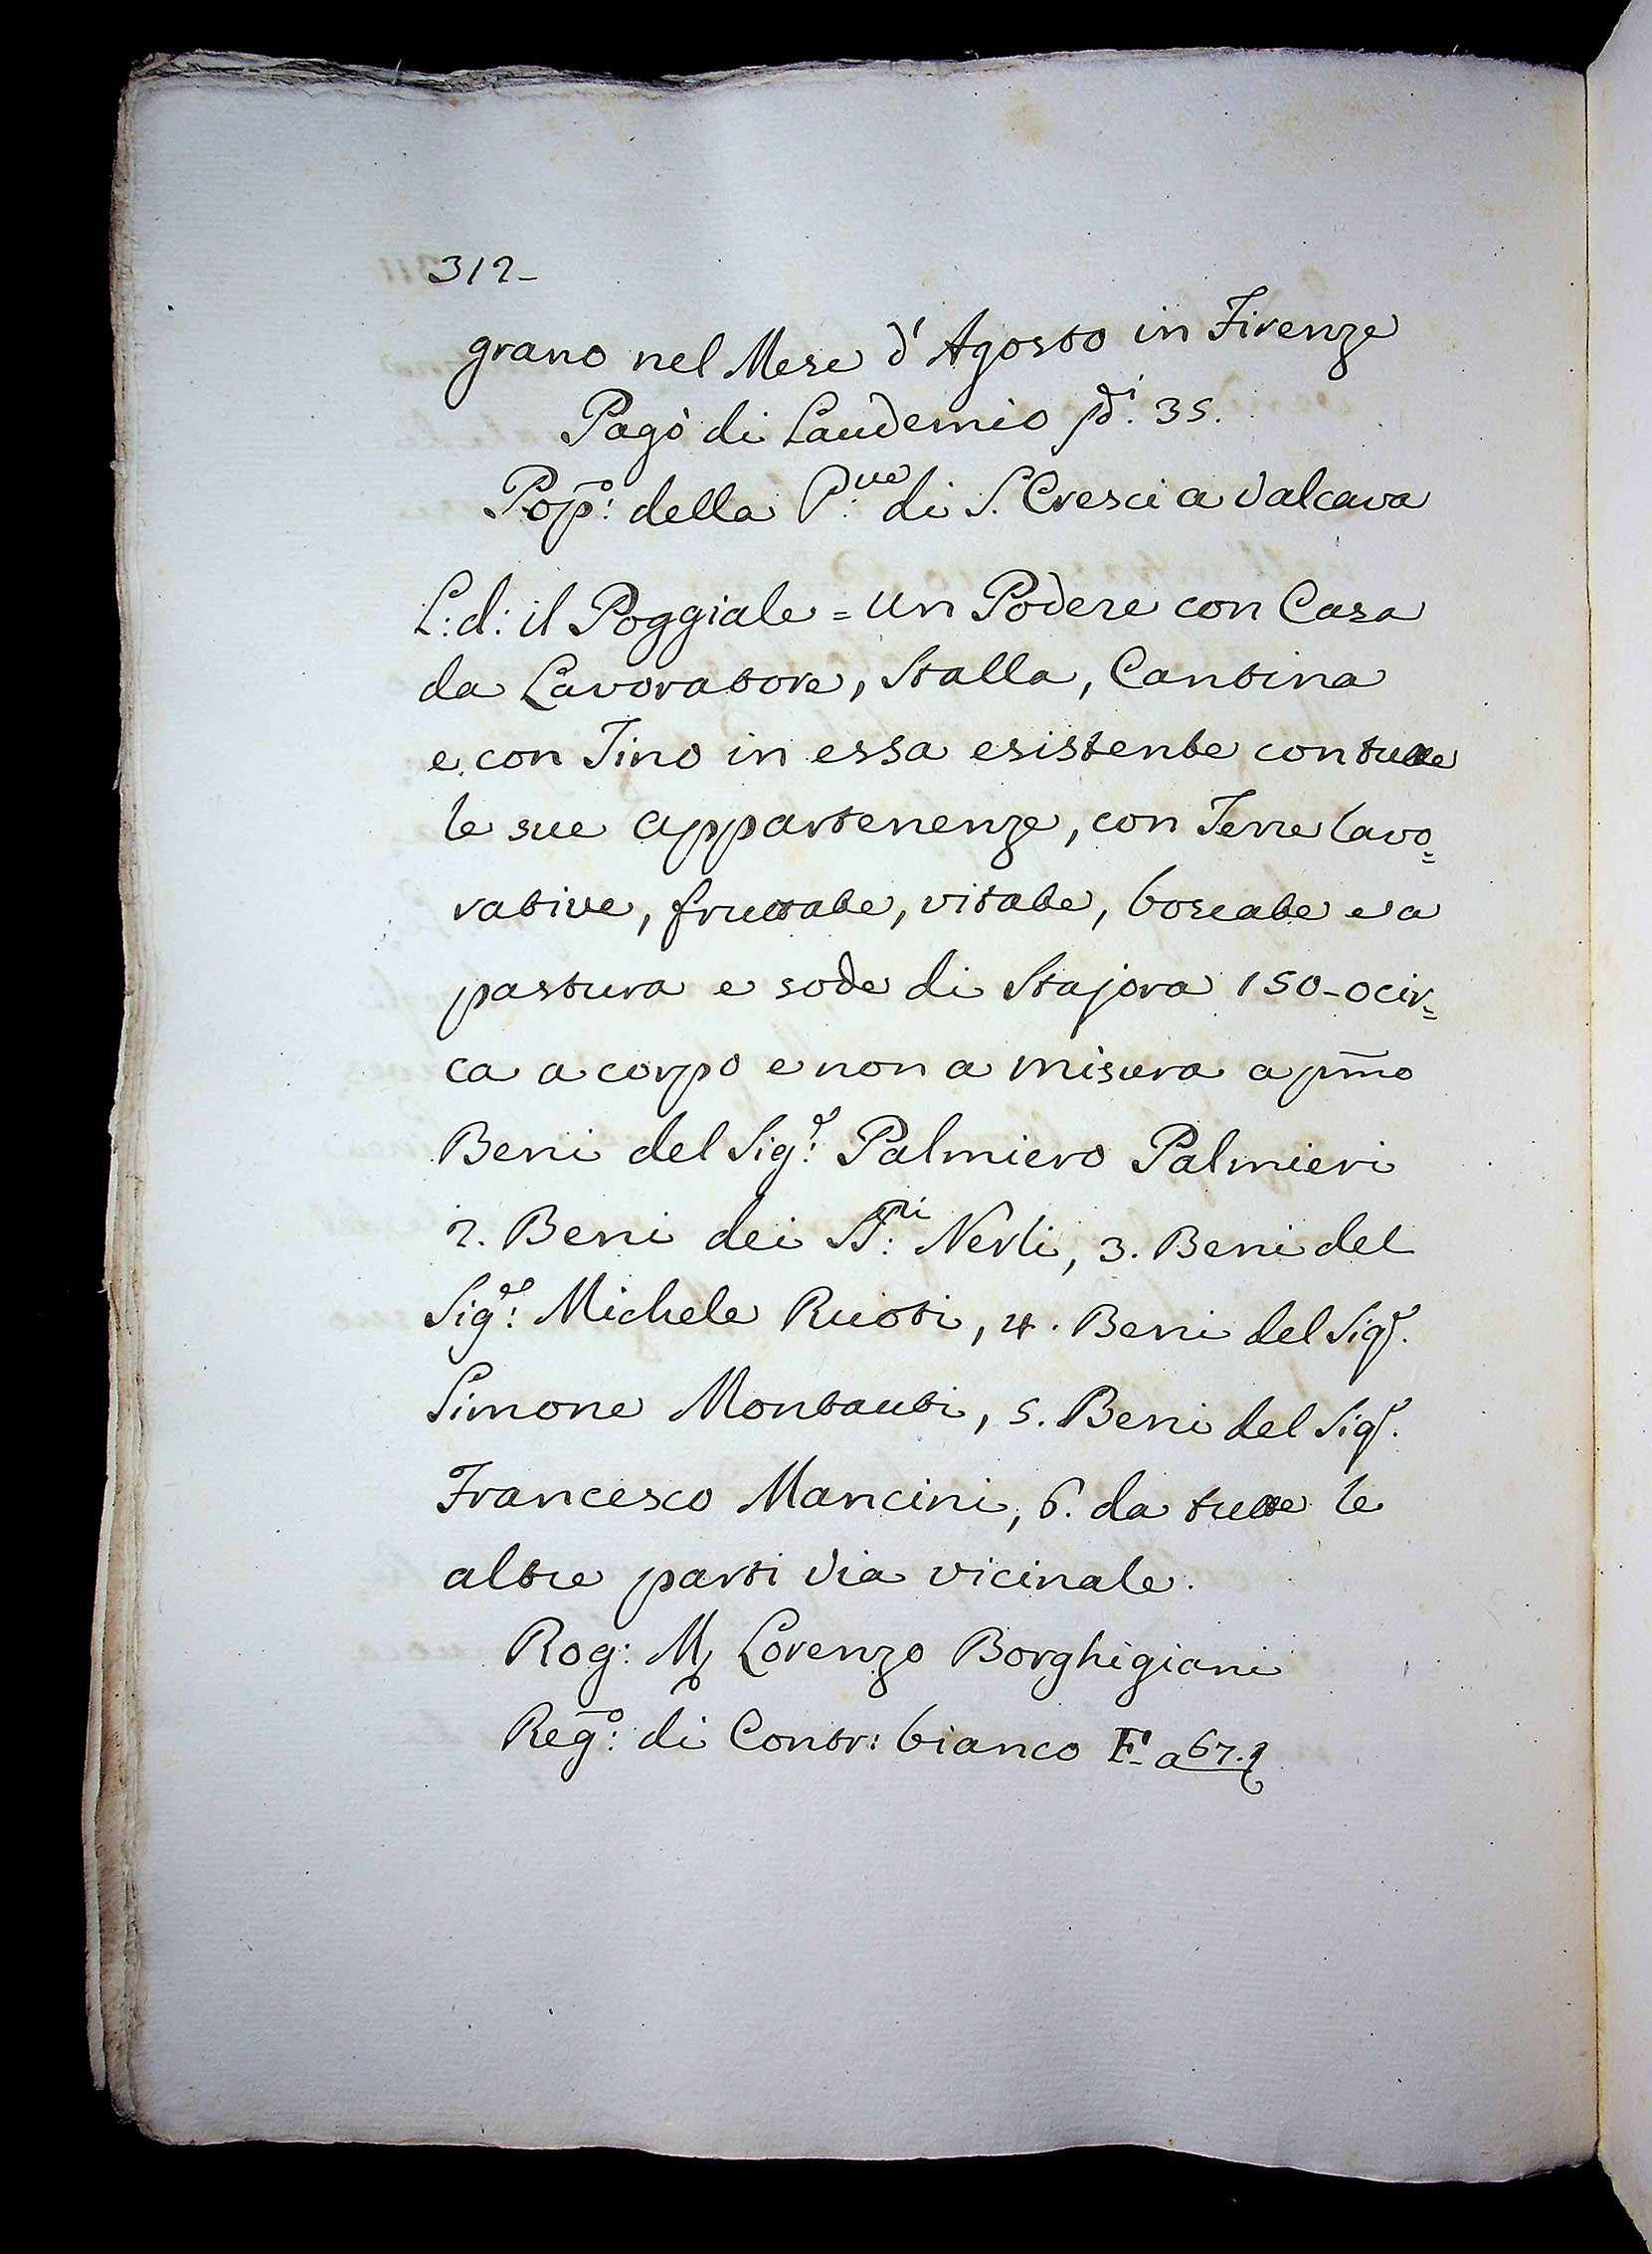 312-
grano nel Mese d'Agosto in Firenze
Pagò di Laudemio 35.
Pop.º: della P.ve di S. Cresci a Valcava
L: d: il Poggiale = un Podere con Casa
da Lavoratore, Stalla, Cantina
e con Tino in essa esistente con tutte
le sue appartenenze, con Terre lavo=
rative, fruttate, vitate, boscate e a
pastura e sode di Stajora 150-0 cir=
ca a corpo e non a misura a pmo
Beni del Sig.r: Palmiero Palmieri
2. Beni dei SS.ri: Nerli, 3. Beni del
Sig.r: Michele Ruoti, 4. Beni del Sig.r
Simone Montauti, 5. Beni del Sig.r
Francesco Mancini, 6. da tutte le
altre parti via vicinale.
Rog: M. Lorenzo Borghigiani
Reg.º: di Contr: bianco F. a 67.